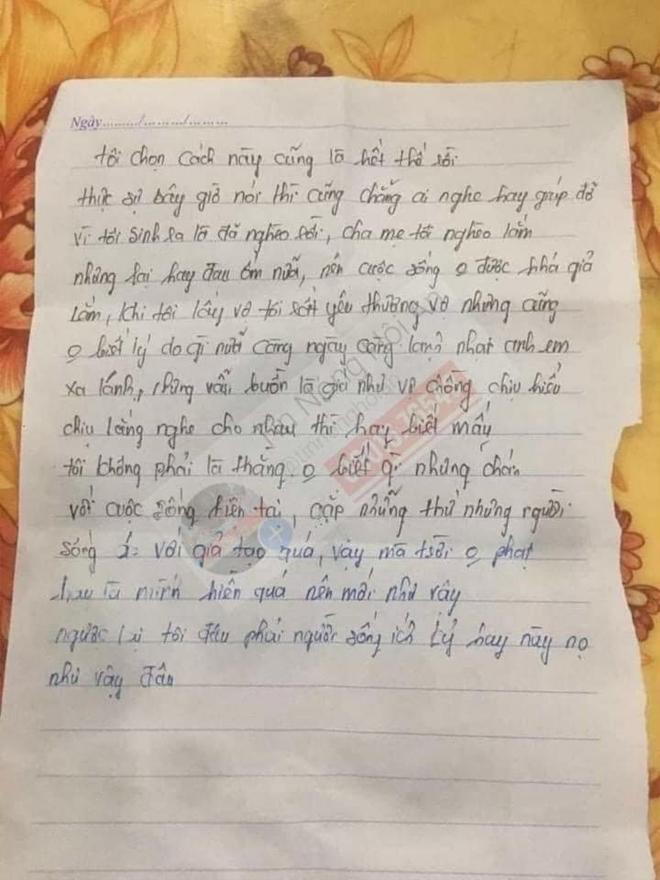 Ngày......../......../........
tôi chọn cách này cũng là hết thể rồi
thực sự bây giờ nói thì cũng chẳng ai nghe hay giúp đỡ
vì tôi sinh ra là đã nghèo rồi, cha mẹ tôi nghèo lắm
nhưng lại hay đau ốm nữa, nên cuộc sống o được khá giả
lắm, khi tôi lấy vợ tôi rất yêu thương vợ nhưng cũng
o biết lý do gì nữa càng ngày càng lạnh nhạt anh em
xa lánh, nhưng vẫn buồn là giá như vợ chồng chịu hiểu
chịu lắng nghe cho nhau thì hay biết mấy
tôi không phải là thằng o biết gì nhưng chán
với cuộc sống hiện tại, gặp những thứ những người
sống với giả tạo quá, vậy mà trời o phạt
hay là mình hiền quá nên mới như vậy
ngược lại tôi đâu phải người sống ích kỷ hay này nọ
như vậy đâu